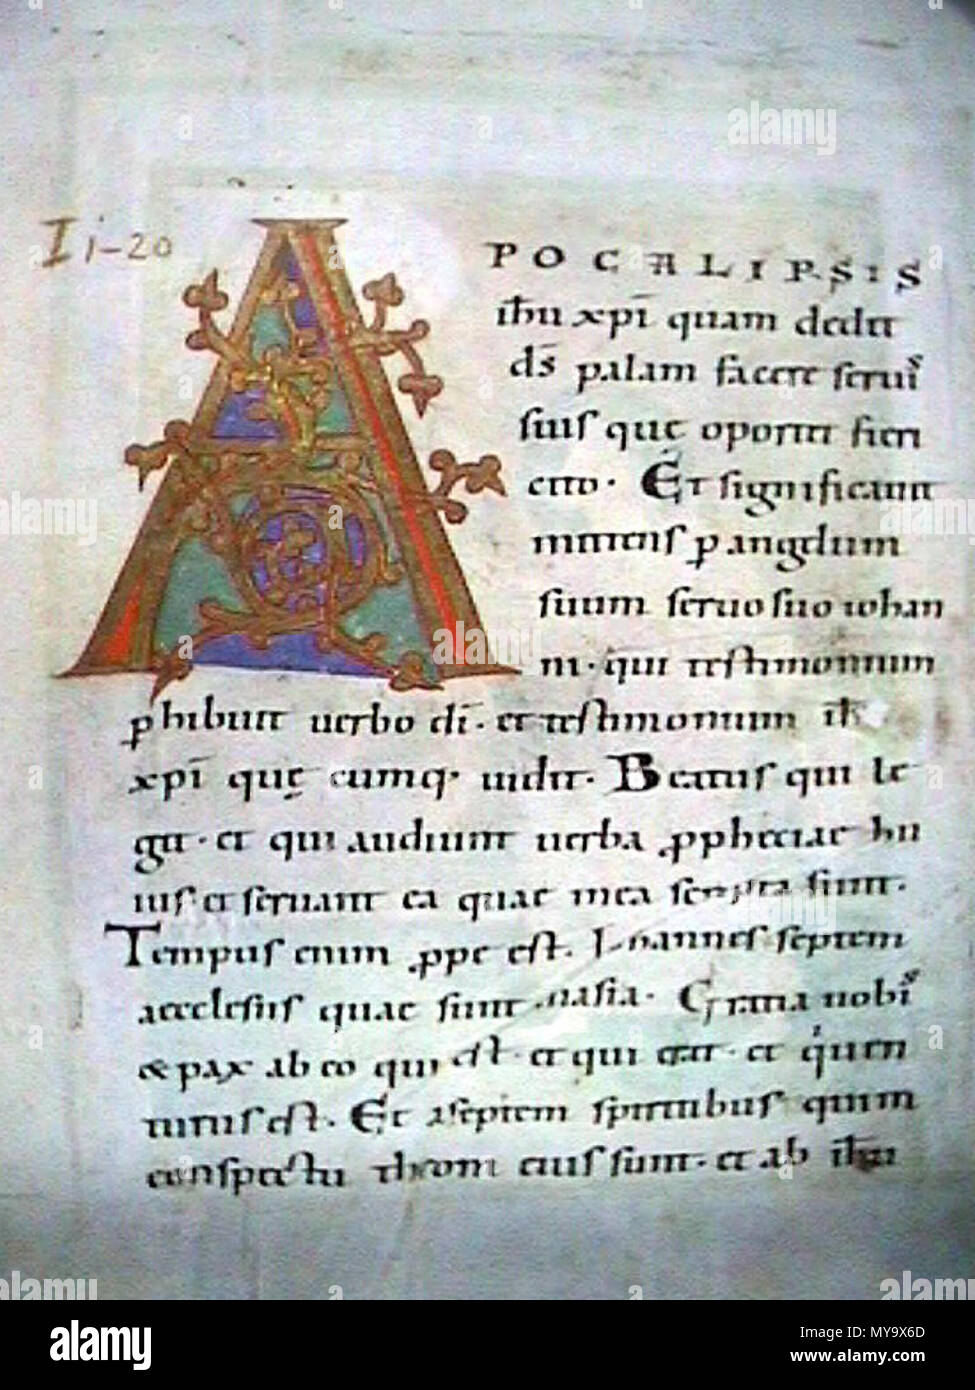 I i-20
APOCALIPSIS
ih̄u xp̄i quam dedit
d̄s palam facere seruis
suis quę oportet fieri
cito · Et significauit
mittens p angelum
suum seruo suo iohan
ni · qui testimonium
phibuit uerbo dī · et testimonium ih̄u
xp̄i quęcumq· uidit · Beatus qui le
git · et qui audiunt uerba pphetiae hu
ius et seruant ea quae in ea scripta sunt ·
Tempus enim ppe est . Iohannes septem
aecclesiis quae sunt in asia · Gratia uobis
& pax ab eo qui est · et qui erat · et qui uen
turus est . Et a septem spiritubus qui in
conspectu throni eius sunt · et ab ih̄u
alamy
alamy stock photo
MY9X6D
www.alamy.com